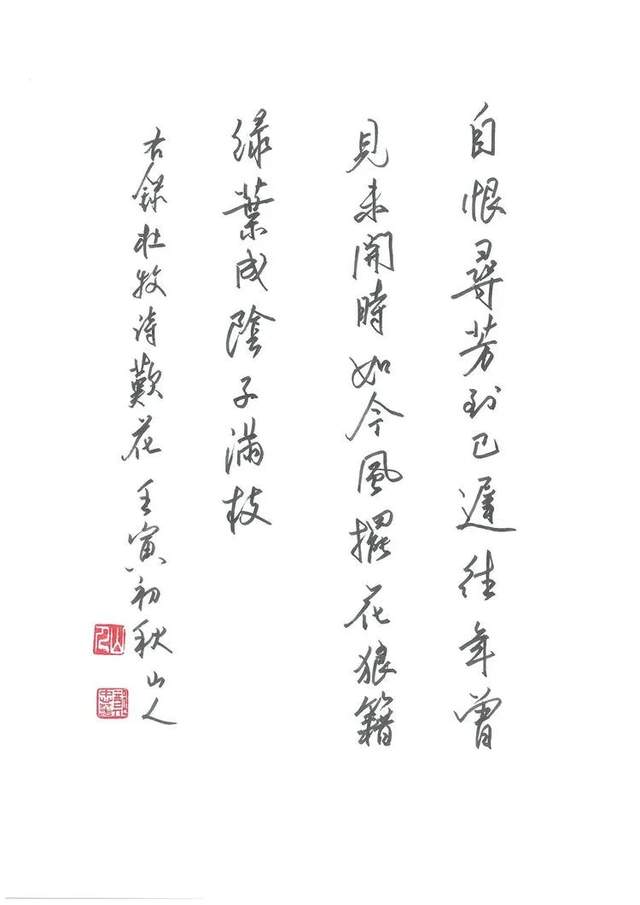 自恨尋芳到已遲往年曾
見未開時如今風擺花狼籍
绿葉成陰子滿枝
右錄杜牧诗歎花壬寅初秋山人
山人